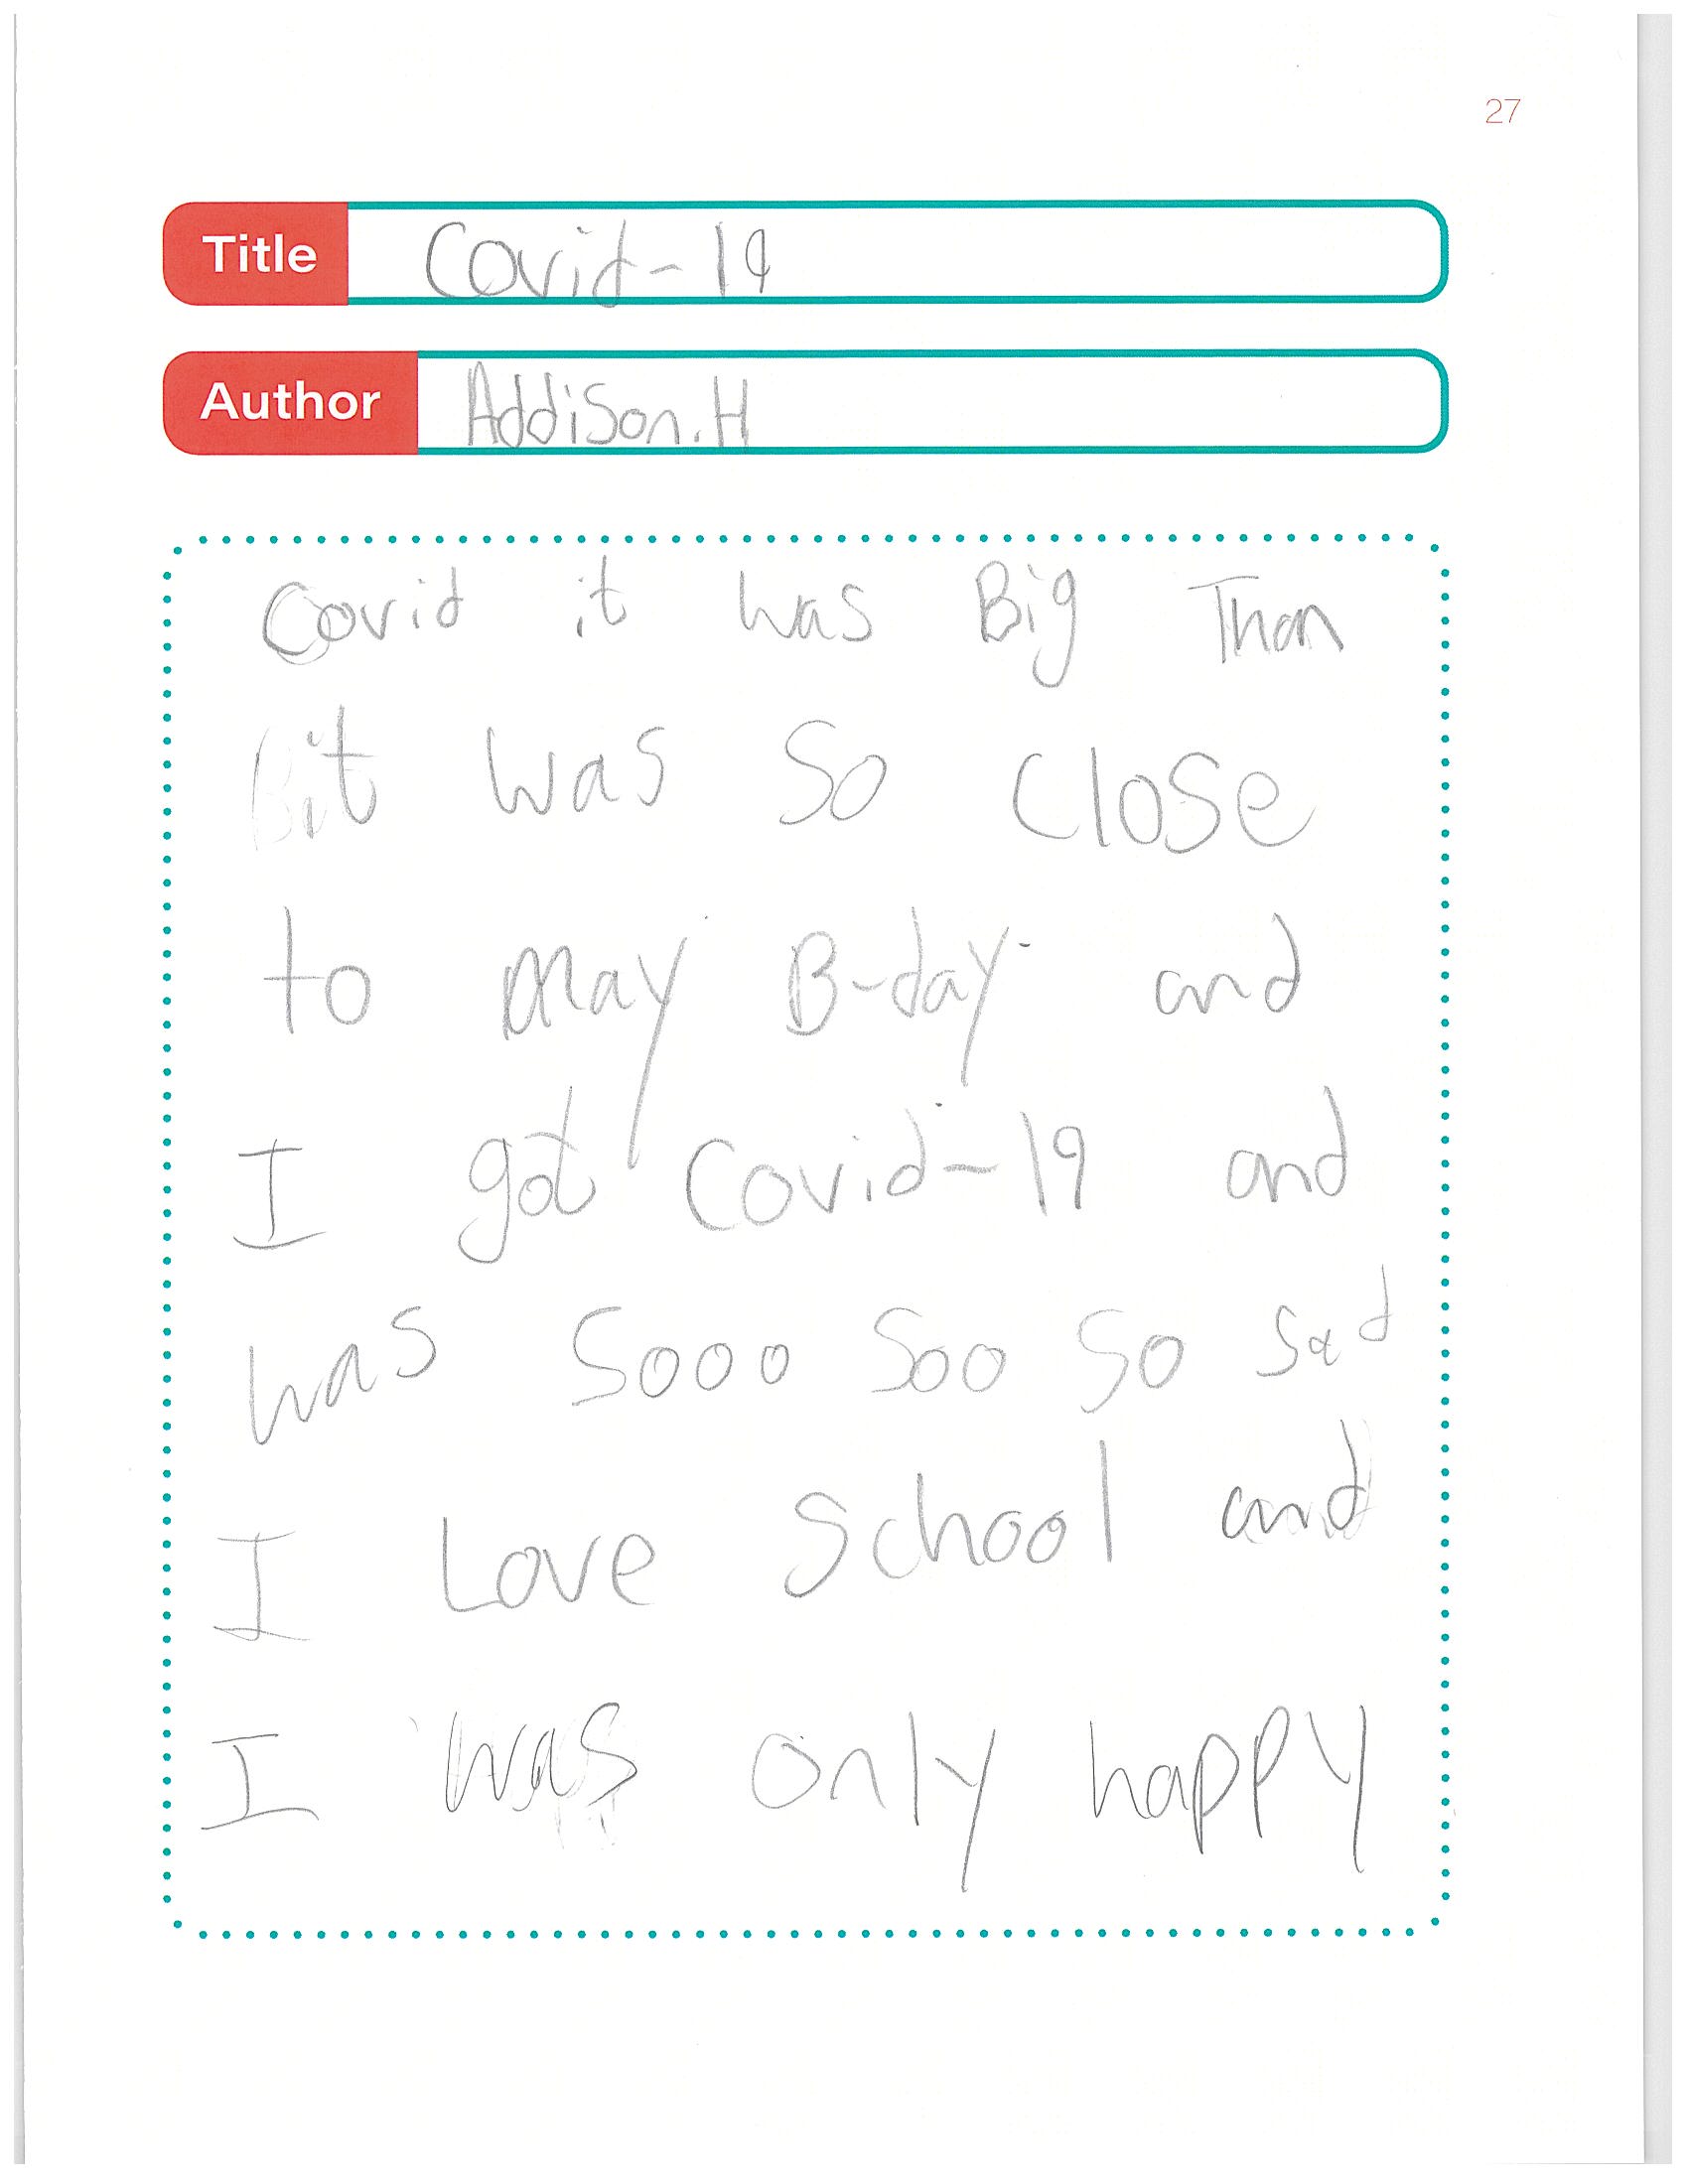 27
Title Covid-19
Author Addison.H
Covid it was Big Than
it was So Close
to may B-day and
I got Covid-19 and
was Sooo Soo So Sad
I Love School and
I was only happy